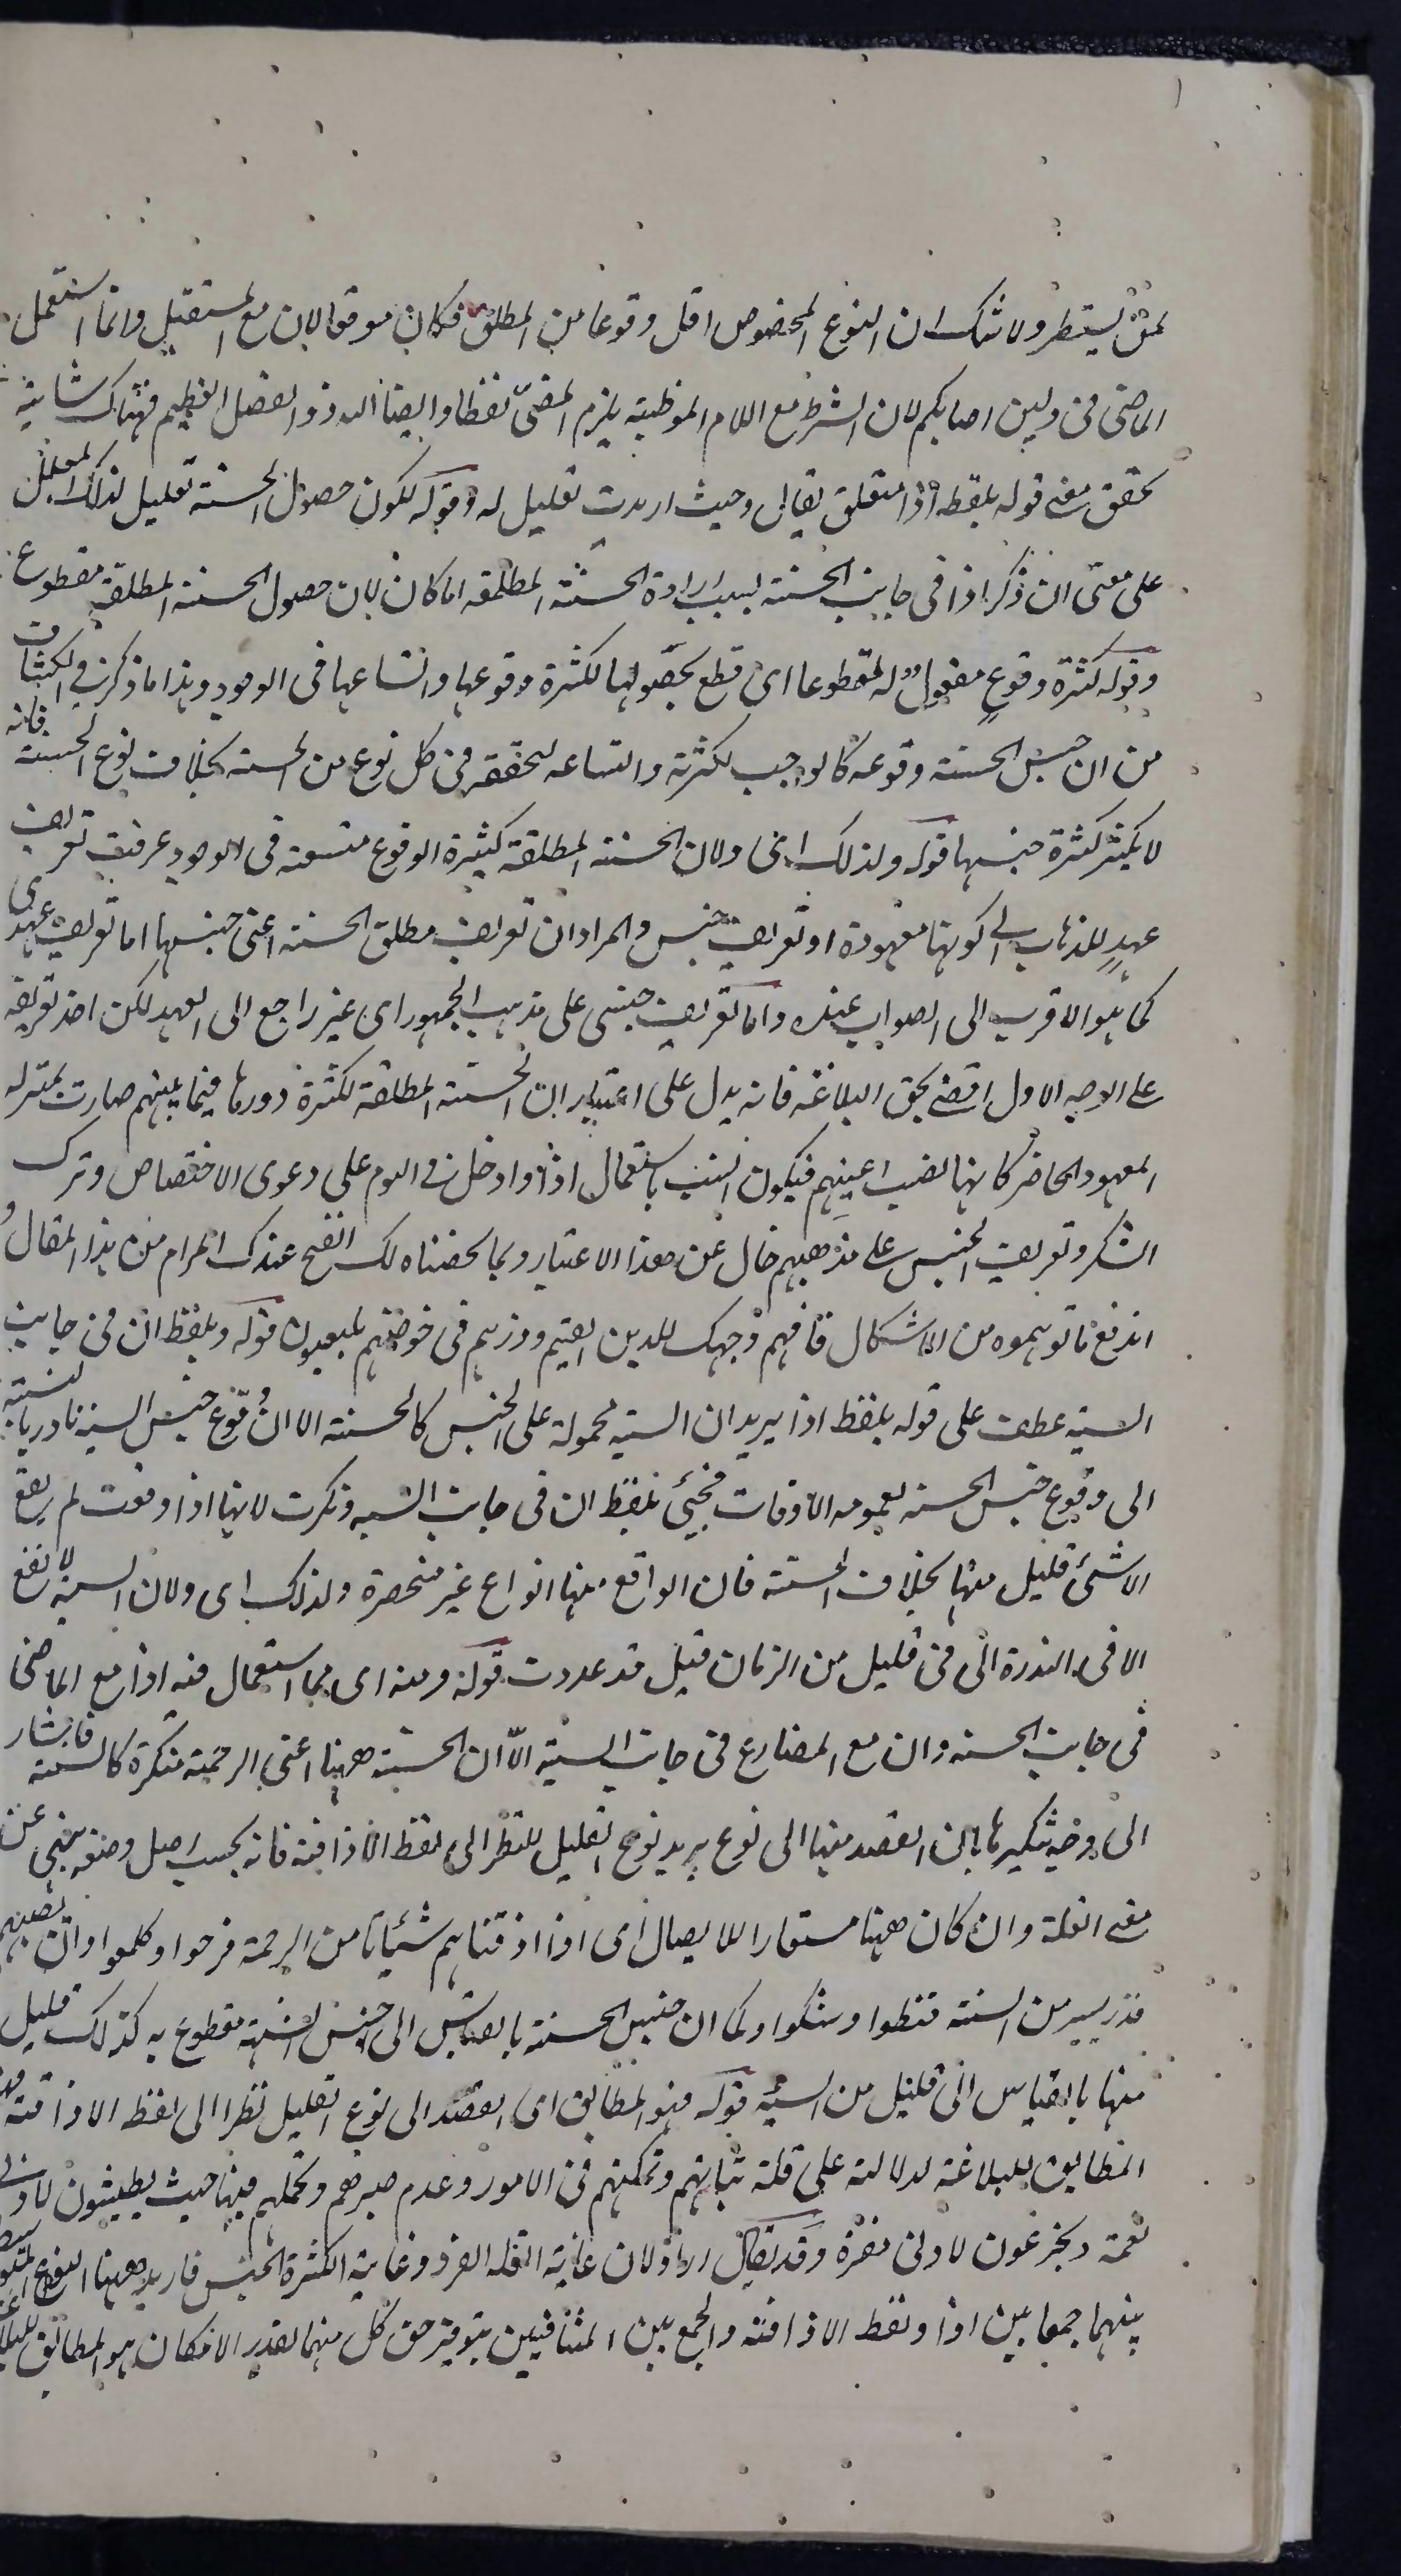 لمن يستطر ولا شك ان النوع المخصوص اقل وقوعا من المطلق فكان موقوا لان مع المستقبل وانما استعمل
الماضى فى ولين اصابكم لان الشرط مع اللام الموطية يلزم المضى لفظا وايضا الله ذو الفضل العظيم فهناك شايبة
تحقق معنى قوله بلفظ اذا متعلق يقال وحيث اريدت تعليل له وقوله لكون حصول الحسنة تعليل لذلك المعلل
على معنى ان ذكر اذا فى جانب الحسنة لسبب ارادة الحسنة المطلقة اما كان لان حصول الحسنة المطلقة مقطوع
وقوله كثرة وقوع مفعول له لمقطوعا اى قطع بحصولها لكثرة وقوعها واتساعها فى الوجود وهذا ما ذكر فى الكشاف
من ان جنس الحسنة وقوعه كالواجب لكثرته واتساعه لتحققه فى كل نوع من الحسنة بخلاف نوع الحسنة فانه
لا يكثر كثرة جنسها قوله ولذلك اى ولان الحسنة المطلقة كثيرة الوقوع متسعة فى الوجود عرفت تعريف
عهد للذهاب الى كونها معهودة او تعريف جنس والمراد ان تعريف مطلق الحسنة اعنى جنسها اما تعريف عهدى
كما هو الاقرب الى الصواب عنده واما تعريف جنسى على مذهب الجمهور اى غير راجع الى العهد لكن اخذ تعريفه
على الوجه الاول اقضى بحق البلاغة فانه يدل على اعتبار ان الحسنة المطلقة لكثرة دورها فيما بينهم صارت بمنزلة
المعهود الحاضر كانها نصب اعينهم فيكون انسب باستعمال اذا وادخل فى اللوم على دعوى الاختصاص وترك
الشكر وتعريف الجنس على مذهبهم خال عن هذا الاعتبار وبما لخصناه لك اتضح عندك المرام من هذا المقال و
اندفع ما توهموه من الاشكال فاقم وجهك للدين القيم وذرهم فى خوضهم يلعبون قوله وبلفظ ان فى جانب
السيئة عطف على قوله بلفظ اذا يريد ان السيئة محمولة على الجنس كالحسنة الا ان وقوع جنس السيئة نادر بالنسبة
الى وقوع جنس الحسنة لعمومه الاوقات فجيئ بلفظ ان فى جانب السيئة ونكرت لانها اذا وقعت لم يقع
الا شئ قليل منها بخلاف الحسنة فان الواقع منها انواع غير منحصرة ولذلك اى ولان السيئة لا تقع
الا فى الندرة اى فى قليل من الزمان قيل قد عددت قوله ومنه اى مما استعمال فيه اذا مع الماضى
فى جانب الحسنة وان مع المضارع فى جانب السيئة الا ان الحسنة ههنا اعنى الرحمة منكرة كالسيئة فاشار
الى وجه تنكيرها بان القصد منها الى نوع يريد نوع التقليل للنظر الى لفظ الاذاقة فانه بحسب اصل وضعه ينبى عن
معنى القلة وان كان ههنا مستعارا للايصال اى اذا اذقناهم شيئا من الرحمة فرحوا وان تصبهم
قدر يسير من السيئة قنطوا وشكوا وكما ان جنس الحسنة بالقياس الى جنس السيئة مقطوع به كذلك قليل
منها بالقياس الى قليل من السيئة قوله فهو المطابق اى القصد الى نوع التقليل نظرا الى لفظ الاذاقة فهو
المطابق للبلاغة لدلالته على قلة ثباتهم وتمكنهم فى الامور وعدم صبرهم وتحملهم فيها حيث يطيشون لادنى
نعمة ويجزعون لادنى مضرة وقد يقال اراد لان غاية القلة الفرد وغاية الكثرة الجنس فاريد ههنا النوع المتوسط
بينهما جمعا بين اذا ولفظ الاذاقة والجمع بين المتنافيين بتوفير حق كل منهما بقدر الامكان هو المطابق للبلاغة